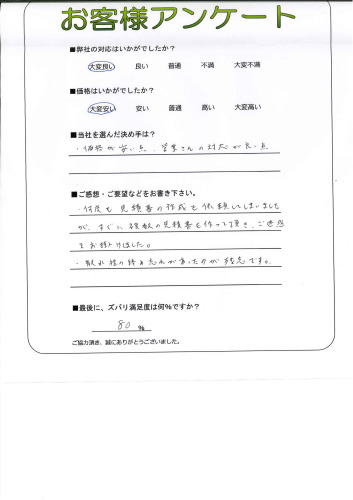 お客様アンケート
■弊社の対応はいかがでしたか?
大変良い 良い 普通 不満 大変不満
■価格はいかがでしたか?
大変安い 安い 普通 高い 大変高い
■当社を選んだ決め手は?
・価格が安い点、営業さんの対応が良い点
■ご感想・ご要望などをお書き下さい。
・何度も見積書の作成を依頼してしまいました
が、すぐに複数の見積書を作って頂き、ご迷惑
をお掛けしました。
・取れ
の終え忘れがあったのが残念です。
■最後に、ズバリ満足度は何%ですか?
80 %
ご協力頂き、誠にありがとうございました。